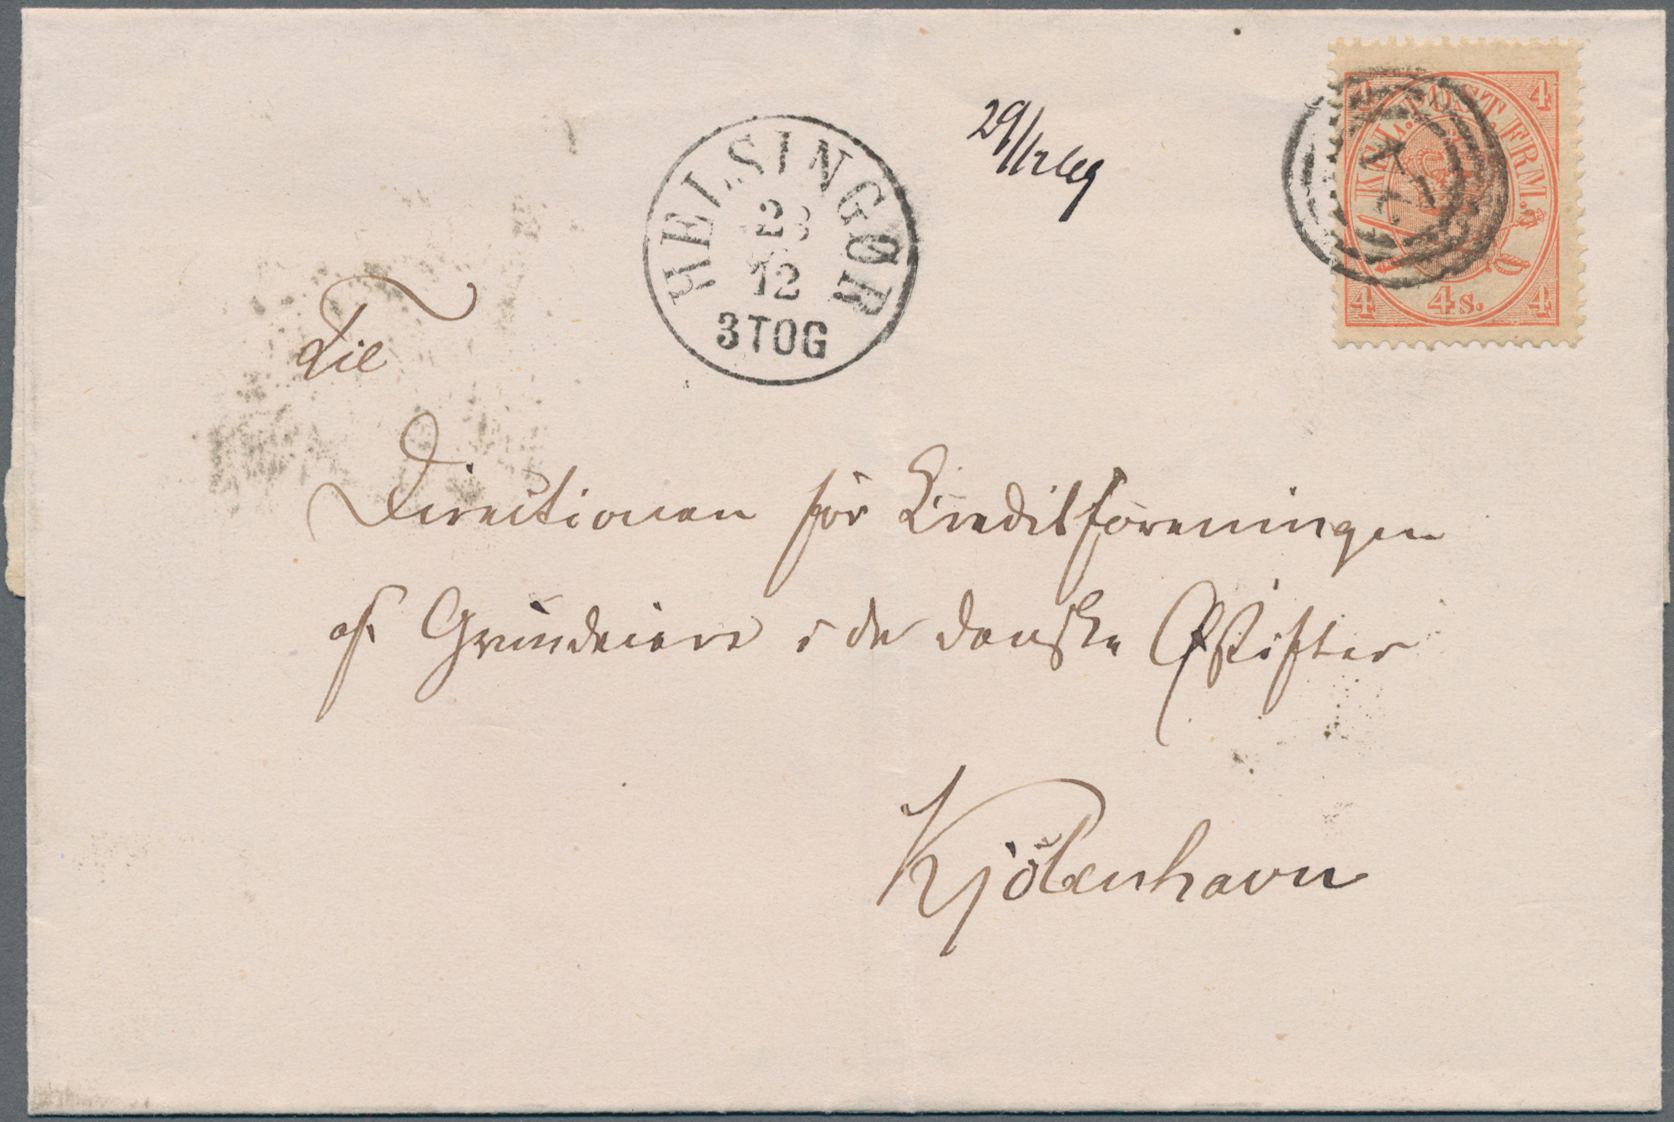 HELSINGØR
28
12
3 TOG
29/12 69
4 4
KGL. POST FRM.
4 4s. 4
Til
Directionen for Kreditforeningen
af Grundeiere i de danske Østifter
Kjöbenhavn